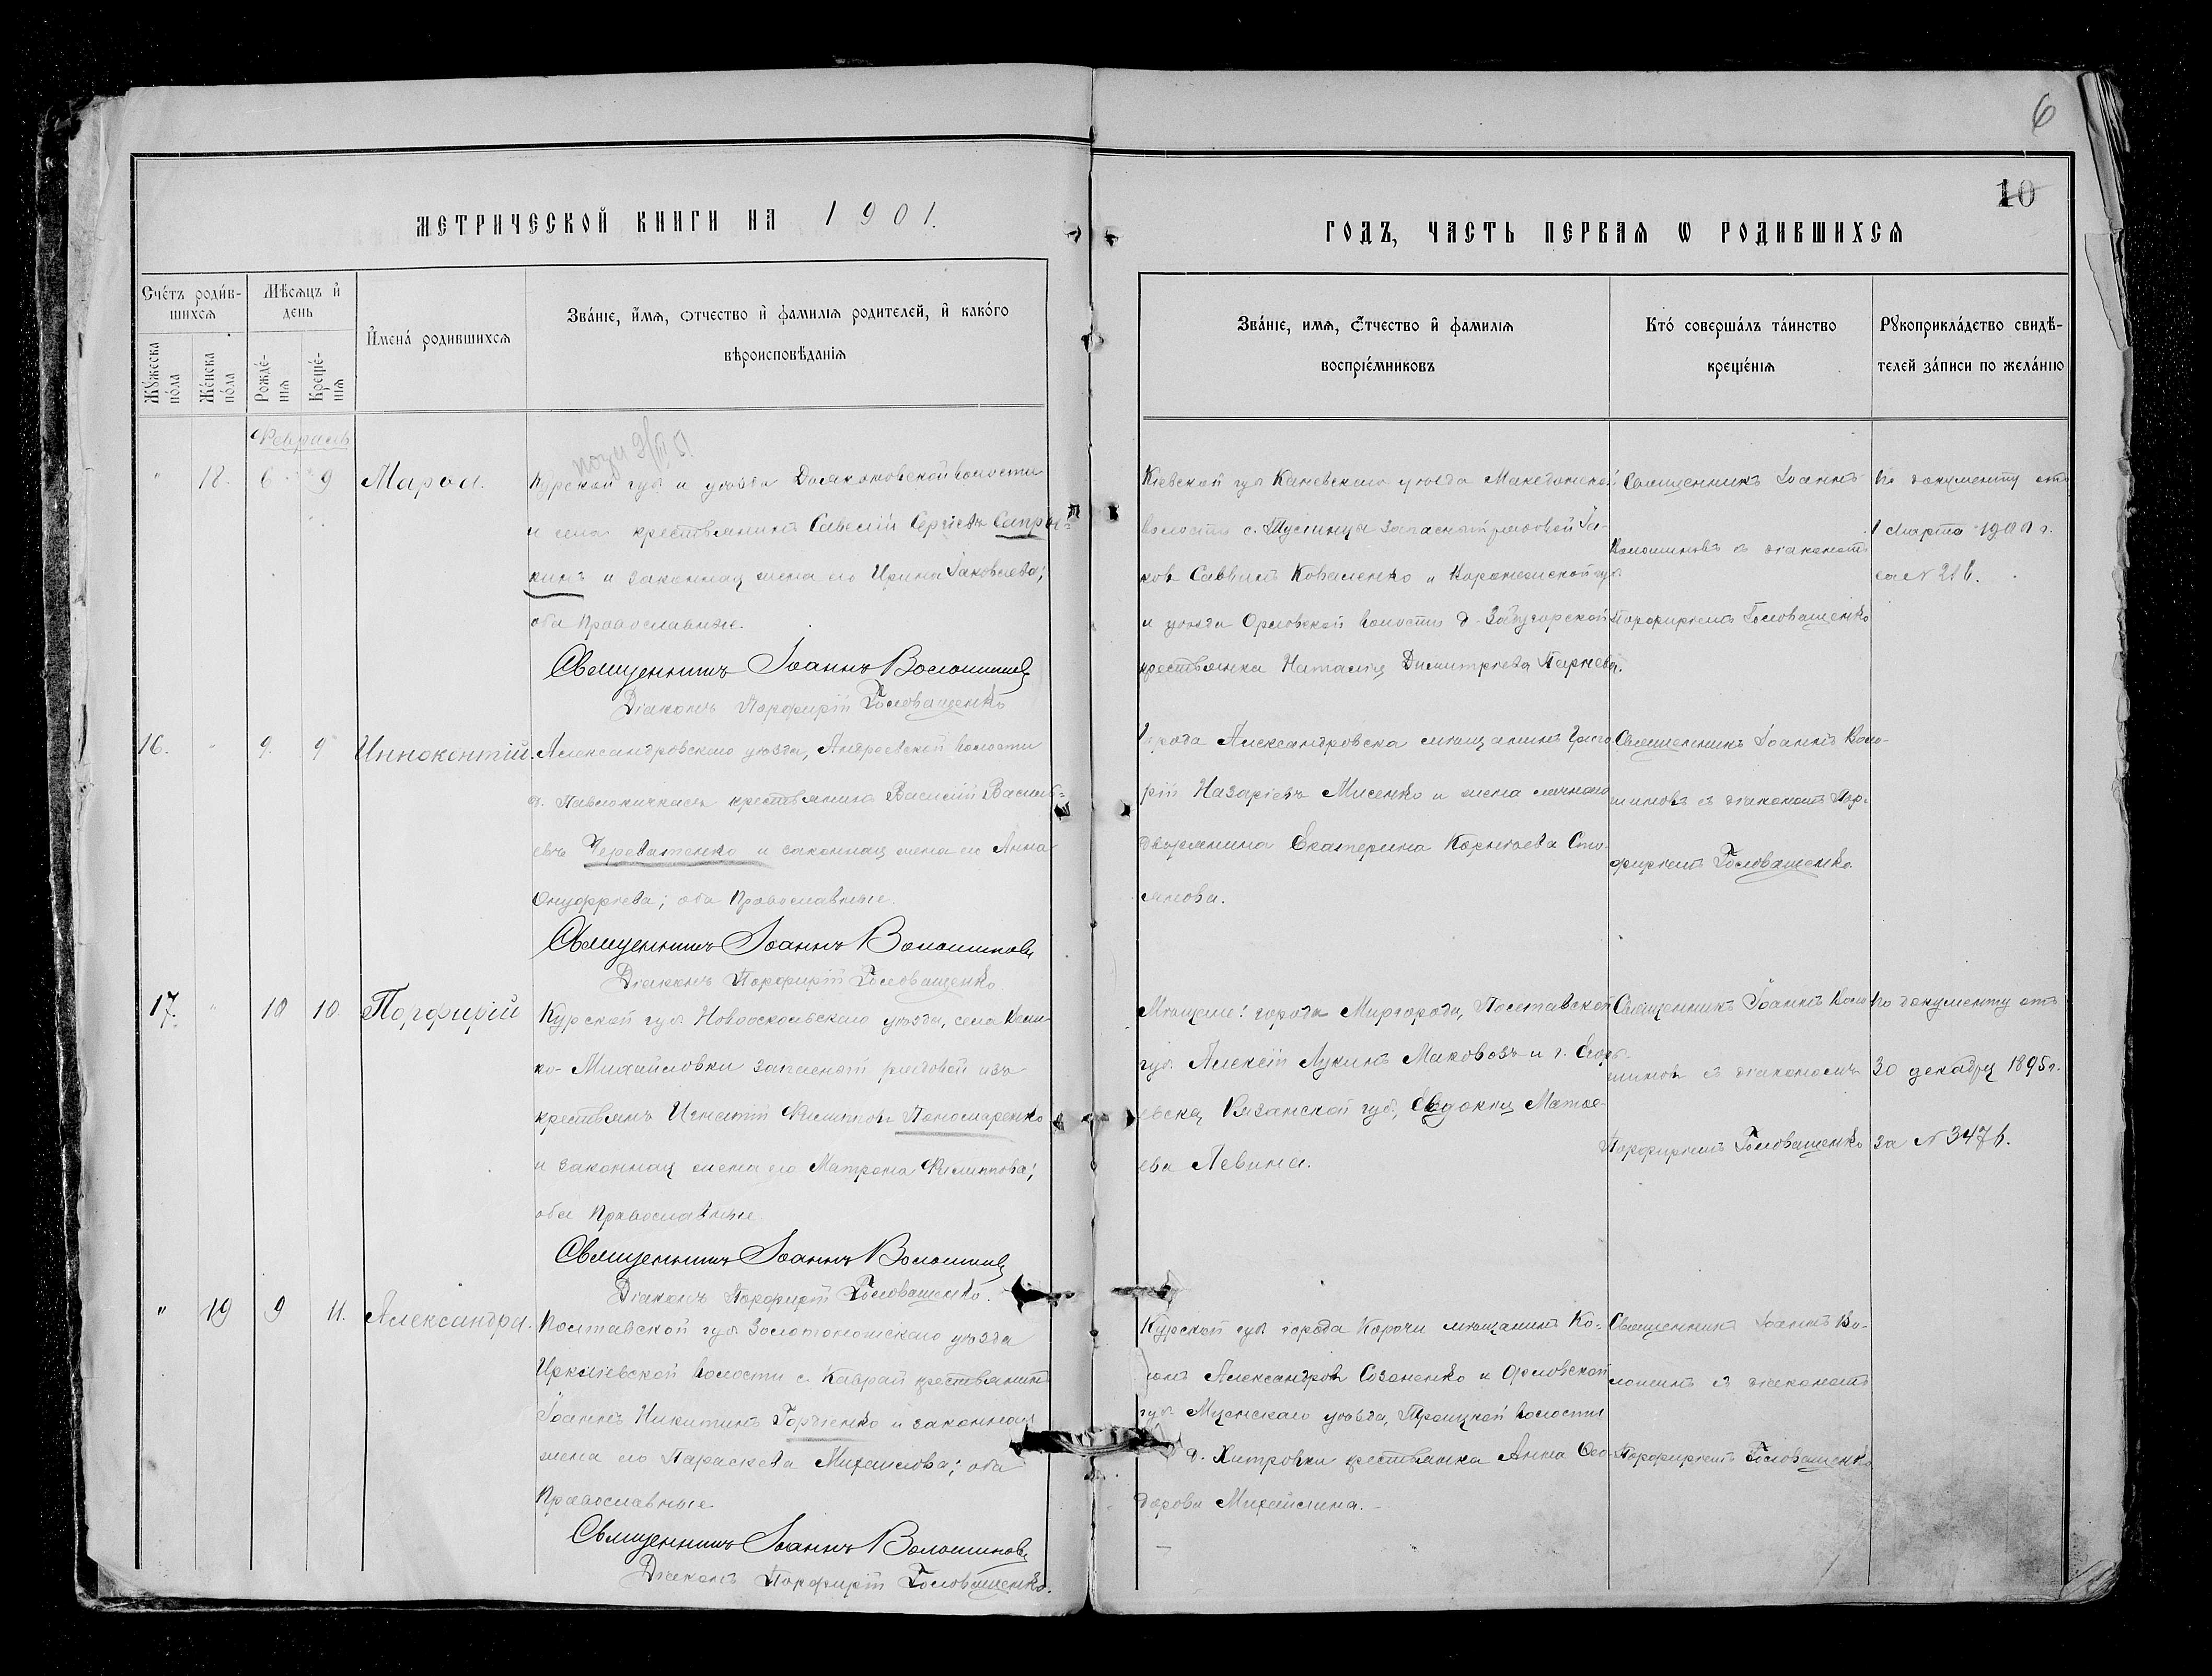 6
10
МЕТРИЧЕСКОЙ КНИГИ НА 1901.
ГОДЪ, ЧАСТЬ ПЕРВАЯ Ѡ РОДИВШИХСЯ
Счетъ родив-
шихся
Мужеска
пола
Женска
пола
Мѣсяцъ и
день
Рожде-
нія
Креще-
нія
Имена родившихся
Званіе, имя, отчество и фамилія родителей, и какого
вѣроисповѣданія
Званіе, имя, отчество и фамилія
воспріемниковъ
Кто совершалъ таинство
крещенія
Рукоприкладство свидѣ-
телей записи по желанію
Февраль
" 18. 6 9 Марѳа.
Курской губ и уѣзда Дьяконовской волости
и села крестьянинъ Савелій Сергіевъ Сапры=
кинъ и законная жена его Ирина Іаковлева;
оба Православные.
Священникъ Іоаннъ Волошиновъ
Діаконъ Порфирій Головащенко
Кіевской губ Каневскаго уѣзда Македонской
волости с. Пустинца запасный рядовой Іа-
ковъ Саввинъ Коваленко и Воронежской губ.
и уѣзда Орловской волости д.
крестьянка Наталія Димитріева
Священникъ Іоаннъ
Волошиновъ съ діакономъ
Порфиріемъ Головащенко
По документу отъ
1 Марта 1900 г.
за №
16. " 9. 9 Иннокентій.
Александровскаго уѣзда, Андреевской волости
д. Павлокичкасъ крестьянинъ Василій Василь=
евъ Череватенко и законная жена его Анна
Онуфріева; оба Православные.
Священникъ Іоаннъ Волошиновъ
Діаконъ Порфирій Головащенко
Города Александровска мѣщанинъ Григо-
рій Назаріевъ Мисенко и жена личного
дворянина Екатерина Корнѣева Сто-
янова.
Священникъ Іоаннъ Воло-
шиновъ съ діакономъ Пор-
фиріемъ Головащенко.
17. " 10 10 Порфирій
Курской губ. Новооскольскаго уѣзда, села Вели-
ко-Михайловки запасный рядовой изъ
крестьянъ Игнатій Филипповъ Пономаренко
и законная жена его Матрона Филиппова;
оба Православные
Священникъ Іоаннъ Волошиновъ
Діаконъ Порфирій Головащенко.
Мѣщане: города Миргорода, Полтавской
губ. Алексій Лукинъ Маковозъ и г. Егорь-
евска, Рязанской губ, Евдокія Матве-
ева Левина.
Священникъ Іоаннъ Воло
шиновъ съ діакономъ
Порфиріемъ Головащенко
По документу отъ
30 декабря 1895 г.
за № 3476.
" 19 9 11. Александра.
Полтавской губ Золотоношскаго уѣзда
Ирклѣевской волости с. Каврай крестьянинъ
Іоаннъ Никитинъ Гордіенко и законная
жена его Параскева Михаилова; оба
Православные
Священникъ Іоаннъ Волошиновъ
Діаконъ Порфирій Головащенко.
Курской губ города Корочи мѣщанинъ
Александровъ Созоненко и Орловской
губ. Мценскаго уѣзда, Троицкой волости
д. Хитровки крестьянка Анна Ѳео-
дорова Михайлина.
Священникъ Іоаннъ Во-
лошинъ съ діакономъ
Порфиріемъ Головащенко